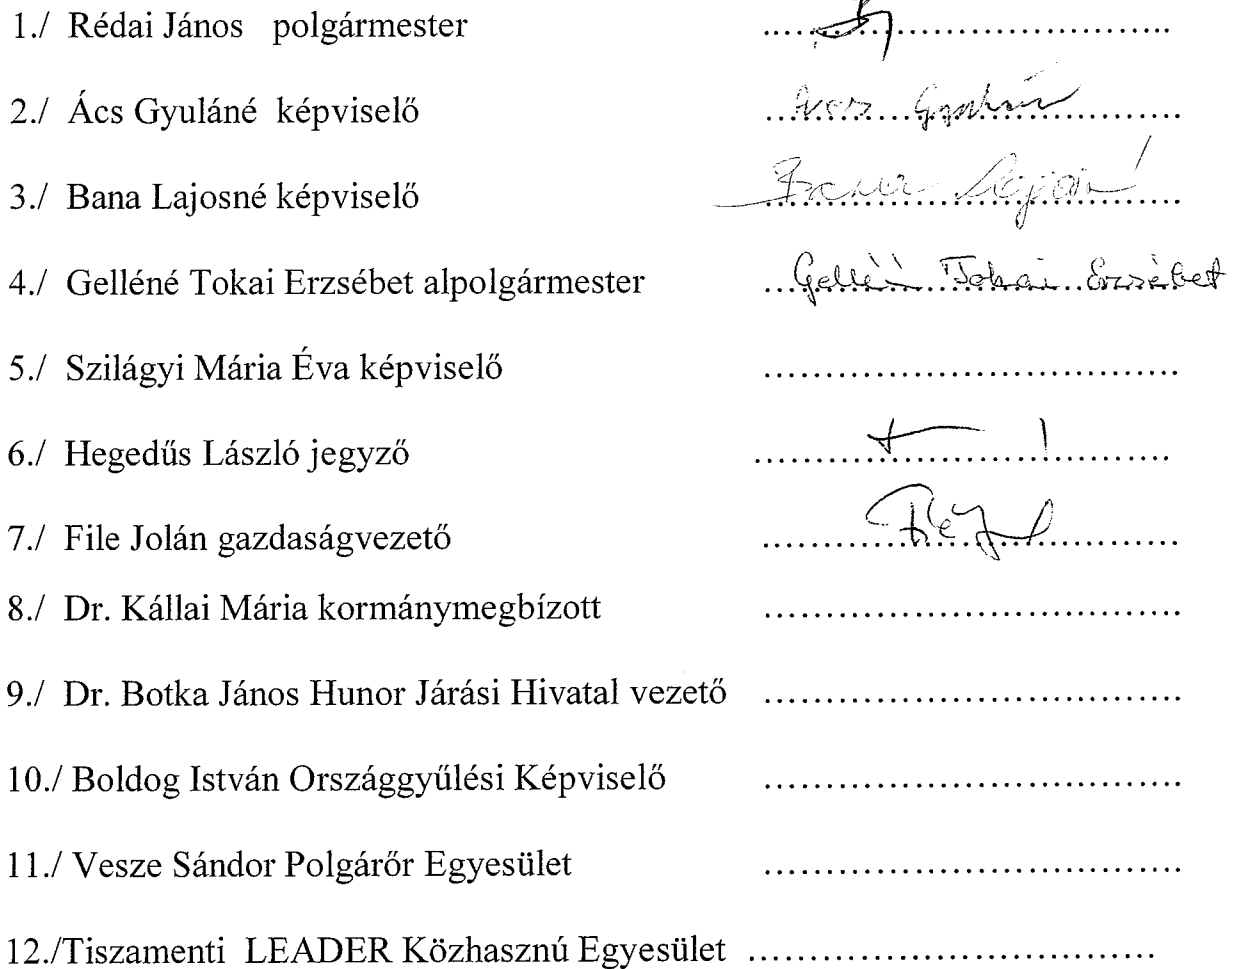 1./ Rédai János polgármester ........................................
2./ Ács Gyuláné képviselő ........................................
3./ Bana Lajosné képviselő ........................................
4./ Gelléné Tokai Erzsébet alpolgármester Gelléné Tokai Erzsébet
5./ Szilágyi Mária Éva képviselő ........................................
6./ Hegedűs László jegyző ........................................
7./ File Jolán gazdaságvezető ........................................
8./ Dr. Kállai Mária kormánymegbízott ........................................
9./ Dr. Botka János Hunor Járási Hivatal vezető ........................................
10./ Boldog István Országgyűlési Képviselő ........................................
11./ Vesze Sándor Polgárőr Egyesület ........................................
12./Tiszamenti LEADER Közhasznú Egyesület ........................................